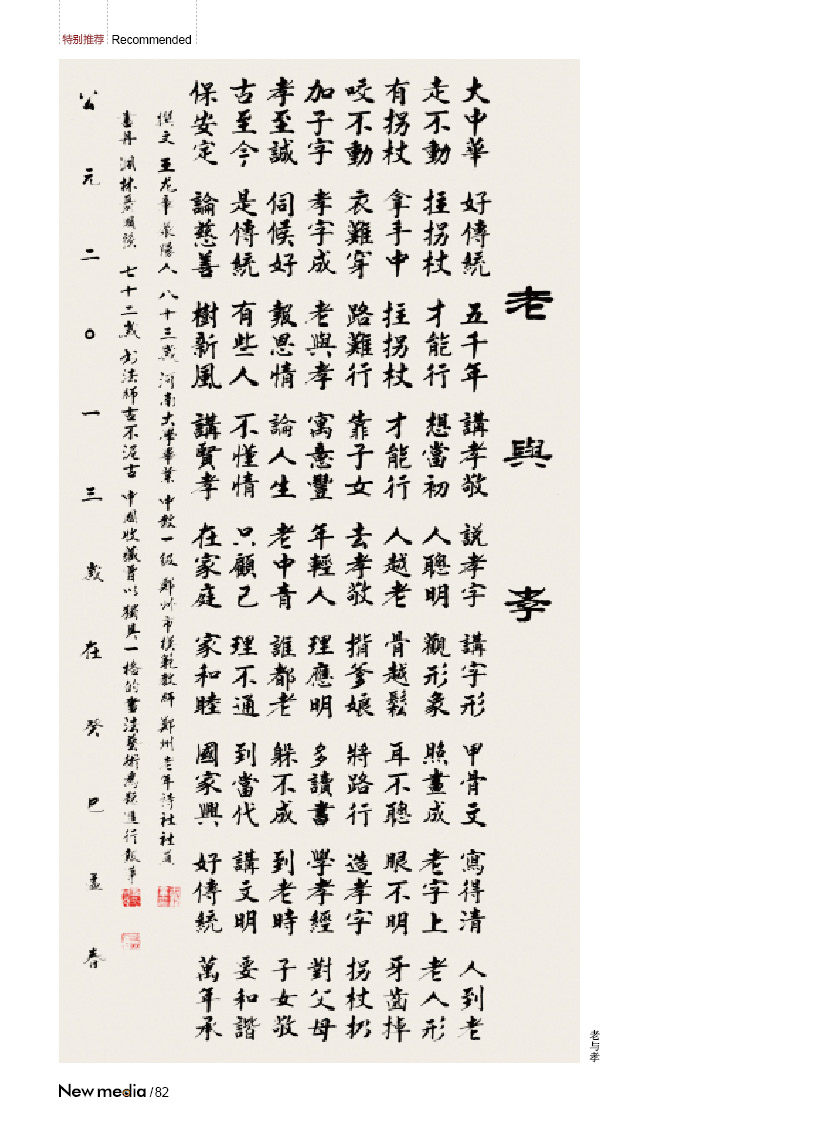 特别推荐 Recommended
老與孝
大中華 好傳統 五千年 講孝敬 説孝字 講字形 甲骨文 寫得清 人到老
走不動 拄拐杖 才能行 想當初 人聰明 觀形象 照畫成 老字上 老人形
有拐杖 拿手中 拄拐杖 才能行 人越老 骨越鬆 耳不聰 眼不明 牙齒掉
咬不動 衣難穿 路難行 靠子女 去孝敬 揹爹娘 將路行 造孝字 拐杖扔
加子字 孝字成 老與孝 寓意豐 年輕人 理應明 多讀書 學孝經 對父母
孝至誠 伺候好 報恩情 論人生 老中青 誰都老 躲不成 到老時 子女敬
古至今 是傳統 有些人 不懂情 只顧己 理不通 到當代 講文明 要和諧
保安定 論慈善 樹新風 講賢孝 在家庭 家和睦 國家興 好傳統 萬年承
撰文 王龙章 人 八十三歲 河南大學畢業 中教一級 鄭州市模範教師 鄭州老年詩社社員
書丹 七十二歲 書法師古不泥古 中國收藏曾以獨具一格的書法藝術為題進行報革
公元二〇一三歲在癸巳孟春
老与孝
New media /82